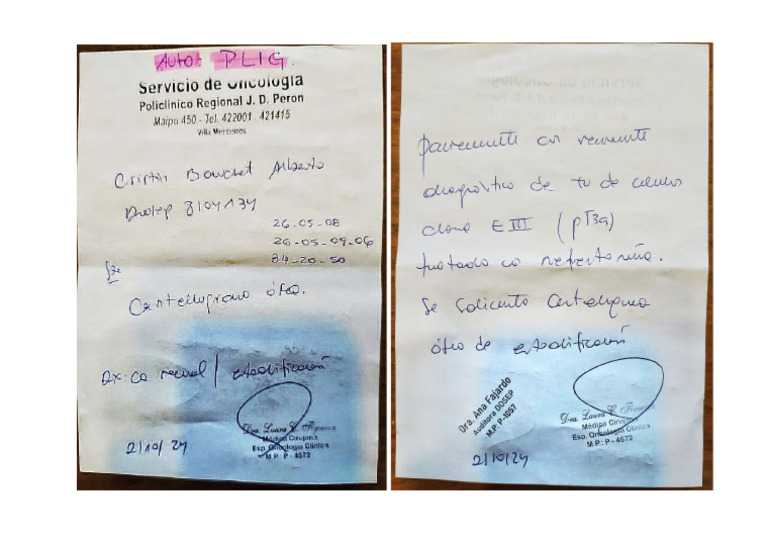 Autor: PLIG.
Servicio de Oncología
Policlínico Regional J. D. Peron
Maipu 450 - Tel. 422001 - 421415
Villa Mercedes
Cristin Bouchet Alberto
Dosep 8104134
26-05-08
26-05-09-06
34-20-50
Centellograma óseo.
Dx: ca renal / estadificación
Dra. Laura C.
Médica Cirujana
Esp. Oncología Clínica
M.P.: P - 4572
2/10/24
paciente con reciente
diagnóstico de tu de células
claras E III (pT3a)
tratado con nefrectomía.
Se solicita Centellograma
óseo de estadificación
Dra. Ana Fajardo
Auditora DOSEP
M.P. P-1057
Dra. Laura C.
Médica Cirujana
Esp. Oncología Clínica
M.P.: P - 4572
2/10/24